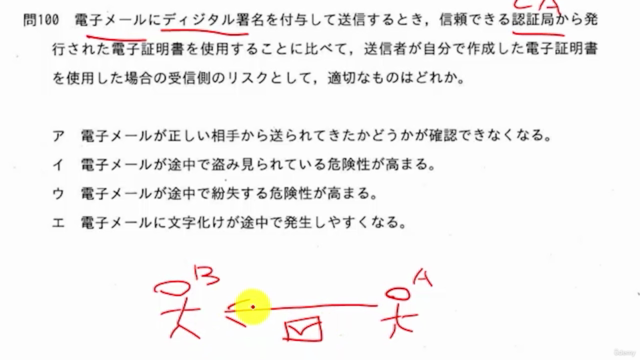 CA
問100 電子メールにディジタル署名を付与して送信するとき，信頼できる認証局から発
行された電子証明書を使用することに比べて，送信者が自分で作成した電子証明書
を使用した場合の受信側のリスクとして，適切なものはどれか。
ア 電子メールが正しい相手から送られてきたかどうかが確認できなくなる。
イ 電子メールが途中で盗み見られている危険性が高まる。
ウ 電子メールが途中で紛失する危険性が高まる。
エ 電子メールに文字化けが途中で発生しやすくなる。
B A
Udemy